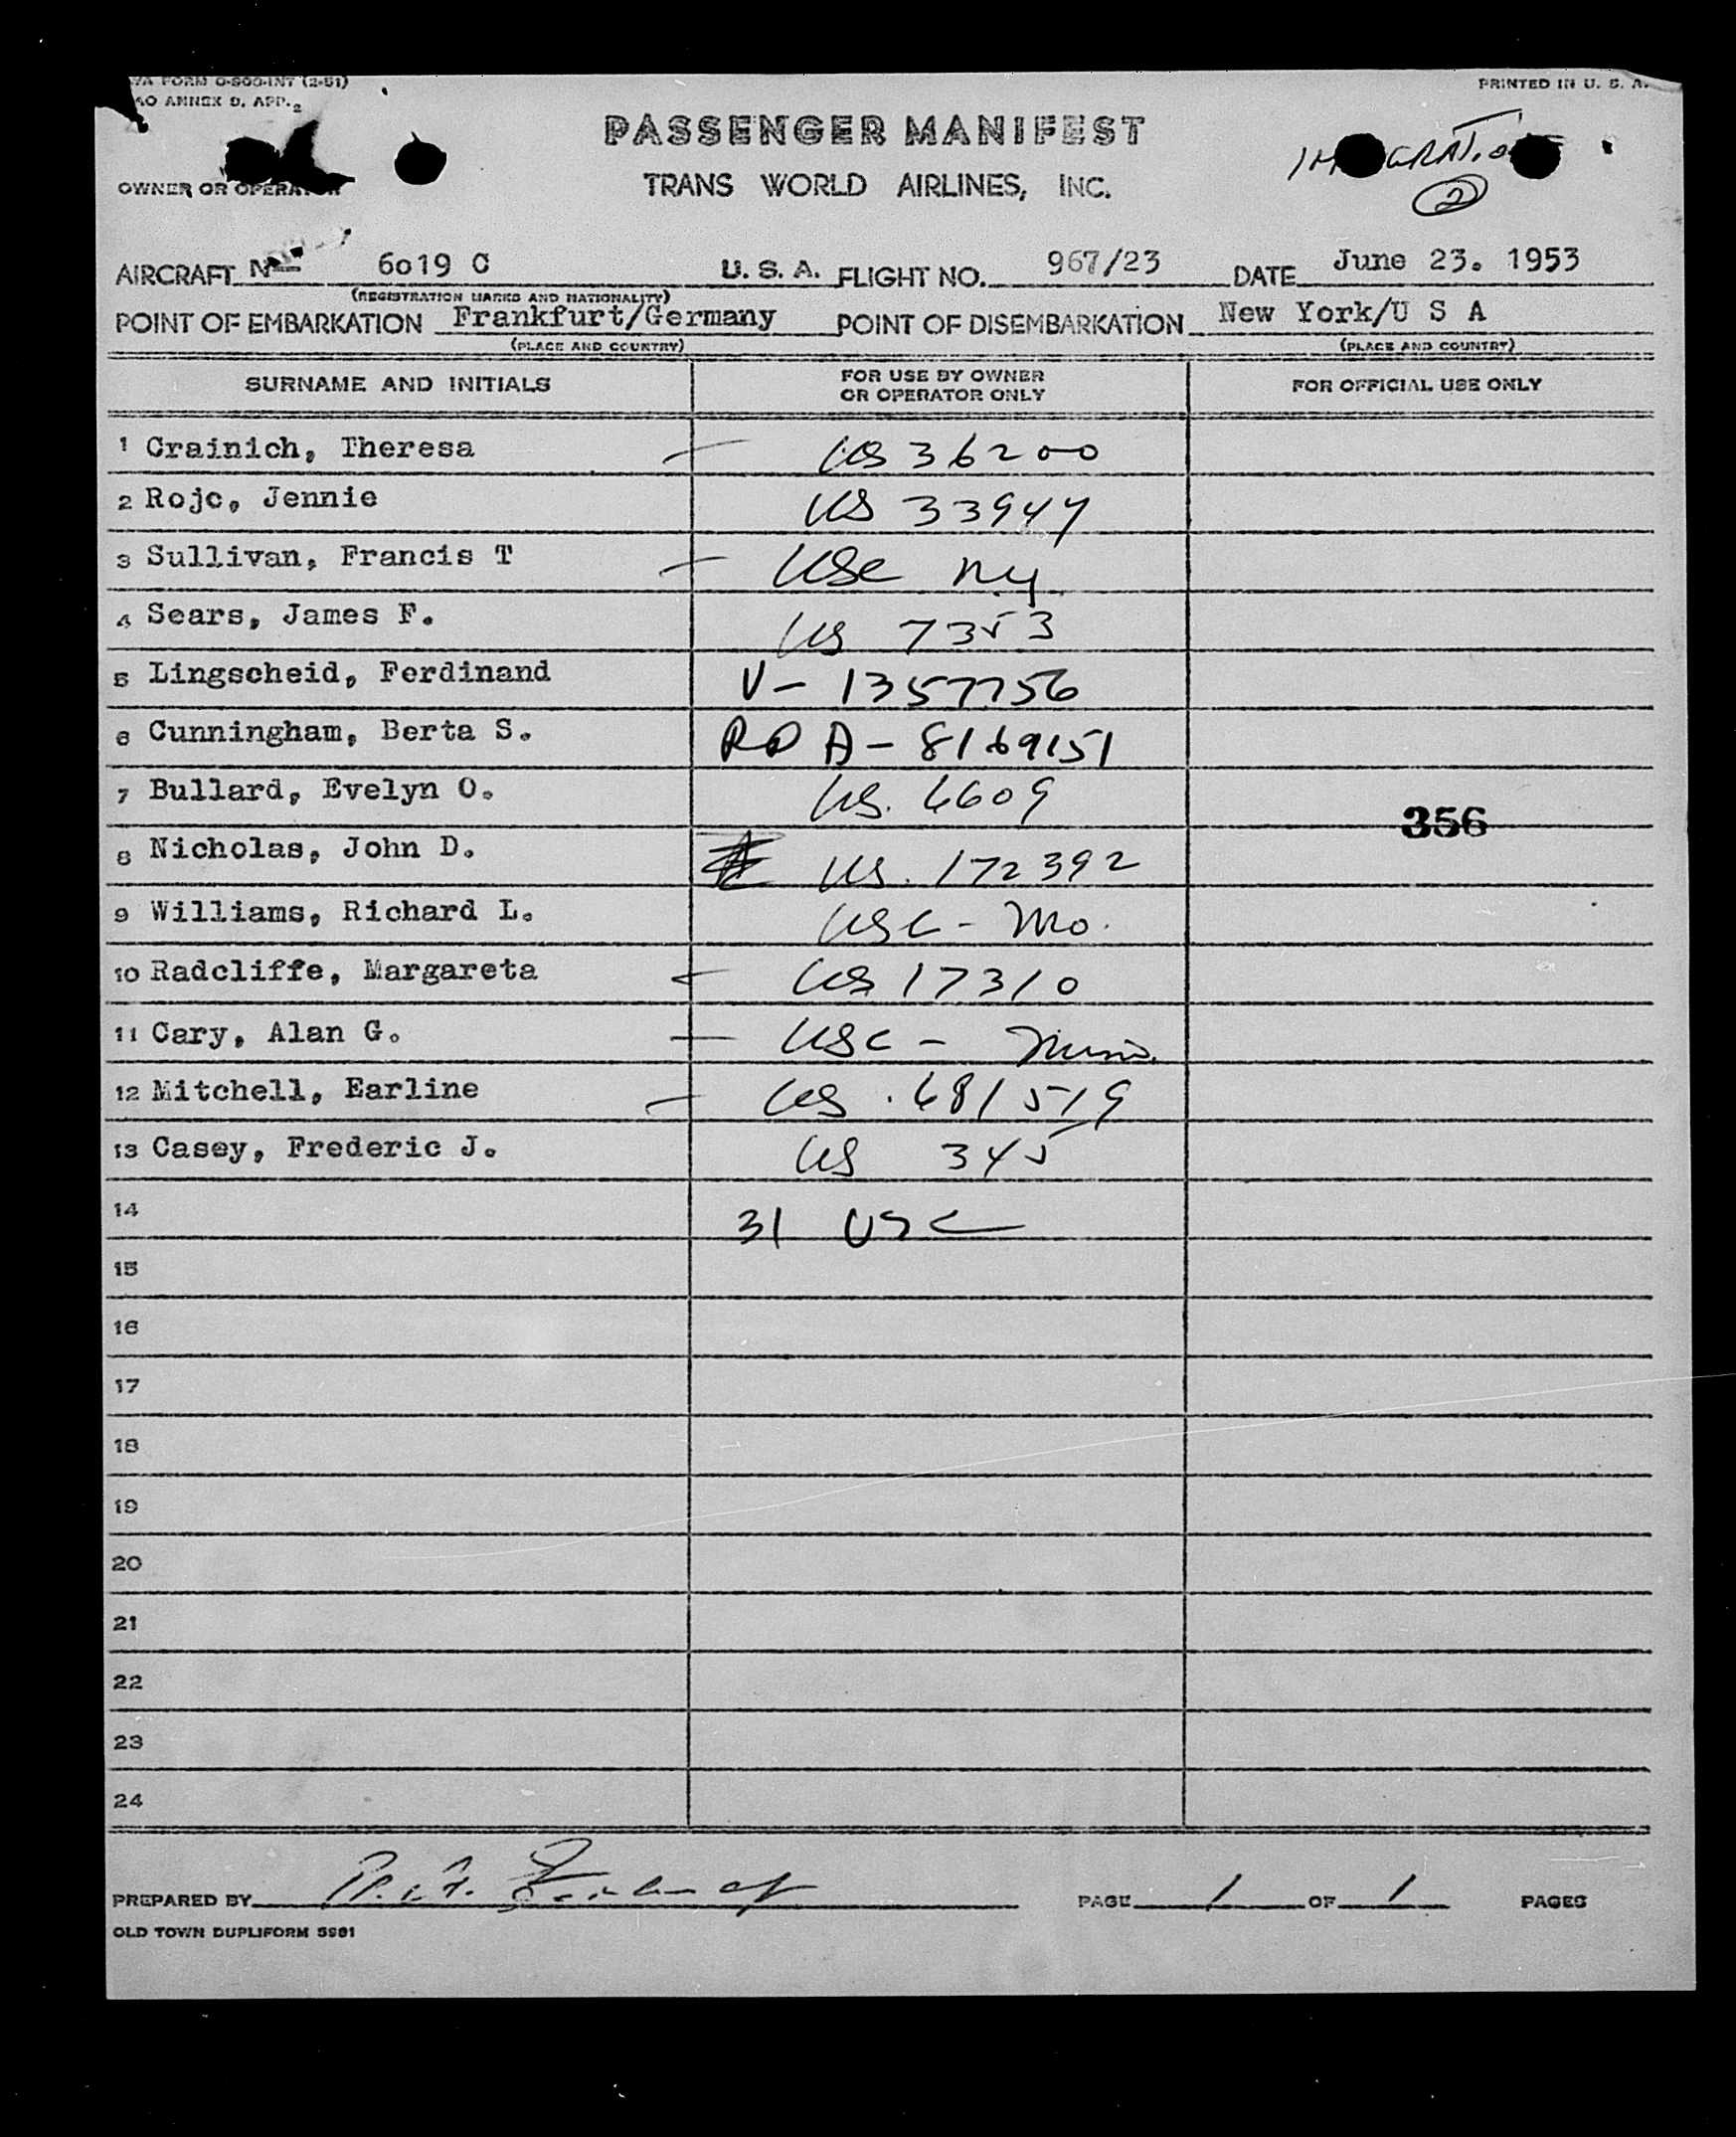 WA FORM O-800-INT (2-51)
AO ANNEX D, APP. 2
PRINTED IN U. S. A.
PASSENGER MANIFEST
TRANS WORLD AIRLINES, INC.
2
OWNER OR OPERATOR
AIRCRAFT N 6019 C U. S. A. FLIGHT NO. 967/23 DATE June 23. 1953
(REGISTRATION MARKS AND NATIONALITY)
POINT OF EMBARKATION Frankfurt/Germany POINT OF DISEMBARKATION New York/U S A
(PLACE AND COUNTRY) (PLACE AND COUNTRY)
SURNAME AND INITIALS FOR USE BY OWNER OR OPERATOR ONLY FOR OFFICIAL USE ONLY
1 Crainich, Theresa — US 36200
2 Rojc, Jennie US 33947
3 Sullivan, Francis T — USC NY
4 Sears, James F. US 7353
5 Lingscheid, Ferdinand V- 1357756
6 Cunningham, Berta S. A- 8169151
7 Bullard, Evelyn O. US. 6609
356
8 Nicholas, John D. US. 172392
9 Williams, Richard L. USC - Mo.
10 Radcliffe, Margareta US 17310
11 Cary, Alan G. — USC -
12 Mitchell, Earline — US. 681519
13 Casey, Frederic J. US 345
14 31 USC
15
16
17
18
19
20
21
22
23
24
PREPARED BY PAGE 1 OF 1 PAGES
OLD TOWN DUPLIFORM 5981